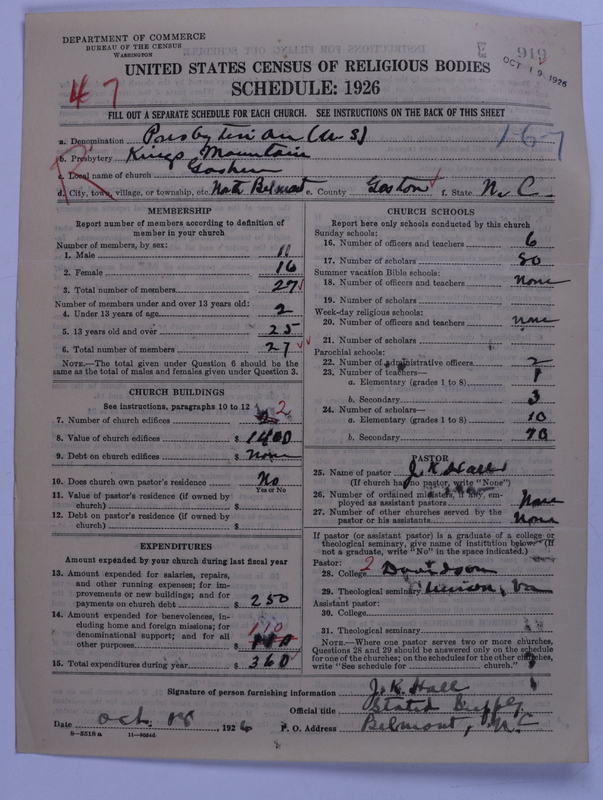 DEPARTMENT OF COMMERCE
BUREAU OF THE CENSUS
WASHINGTON
OCT 19 1926
UNITED STATES CENSUS OF RELIGIOUS BODIES
SCHEDULE: 1926
47
FILL OUT A SEPARATE SCHEDULE FOR EACH CHURCH. SEE INSTRUCTIONS ON THE BACK OF THIS SHEET
1-6-7
R
a. Denomination Presbyterian (U.S)
b. Presbytery Kings Mountain
c. Local name of church Goshen
d. City, town, village, or township, etc. North Belmont e. County Gaston f. State N. C.
MEMBERSHIP
Report number of members according to definition of
member in your church
Number of members, by sex:
1. Male 11
2. Female 16
3. Total number of members 27
Number of members under and over 13 years old:
4. Under 13 years of age 2
5. 13 years old and over 25
6. Total number of members 27
NOTE.—The total given under Question 6 should be the
same as the total of males and females given under Question 3.
CHURCH BUILDINGS
See instructions, paragraphs 10 to 12
7. Number of church edifices 2
8. Value of church edifices $ 1400
9. Debt on church edifices $ None
10. Does church own pastor's residence No
Yes or No
11. Value of pastor's residence (if owned by
church) $
12. Debt on pastor's residence (if owned by
church) $
EXPENDITURES
Amount expended by your church during last fiscal year
13. Amount expended for salaries, repairs,
and other running expenses; for im-
provements or new buildings; and for
payments on church debt $ 250
14. Amount expended for benevolences, in-
cluding home and foreign missions; for
denominational support; and for all
other purposes $ 110
15. Total expenditures during year $ 360
CHURCH SCHOOLS
Report here only schools conducted by this church
Sunday schools:
16. Number of officers and teachers 6
17. Number of scholars 80
Summer vacation Bible schools:
18. Number of officers and teachers None
19. Number of scholars
Week-day religious schools:
20. Number of officers and teachers none
21. Number of scholars
Parochial schools:
22. Number of administrative officers 2
23. Number of teachers—
a. Elementary (grades 1 to 8) 1
b. Secondary 3
24. Number of scholars—
a. Elementary (grades 1 to 8) 10
b. Secondary 70
PASTOR
25. Name of pastor J. K. Hall
(If church has no pastor, write "None")
26. Number of ordained ministers, if any, em-
ployed as assistant pastors None
27. Number of other churches served by the
pastor or his assistants None
If pastor (or assistant pastor) is a graduate of a college or
theological seminary, give name of institution below. (If
not a graduate, write "No" in the space indicated.)
Pastor:
28. College 2 Davidson
29. Theological seminary Union, Va
Assistant pastor:
30. College
31. Theological seminary
NOTE.—Where one pastor serves two or more churches,
Questions 28 and 29 should be answered only on the schedule
for one of the churches; on the schedules for the other churches,
write "See schedule for church."
Signature of person furnishing information J. K. Hall
Official title Stated Supply
Date Oct. 18, 1926 P. O. Address Belmont, N. C
8—5518 a 11—9034d